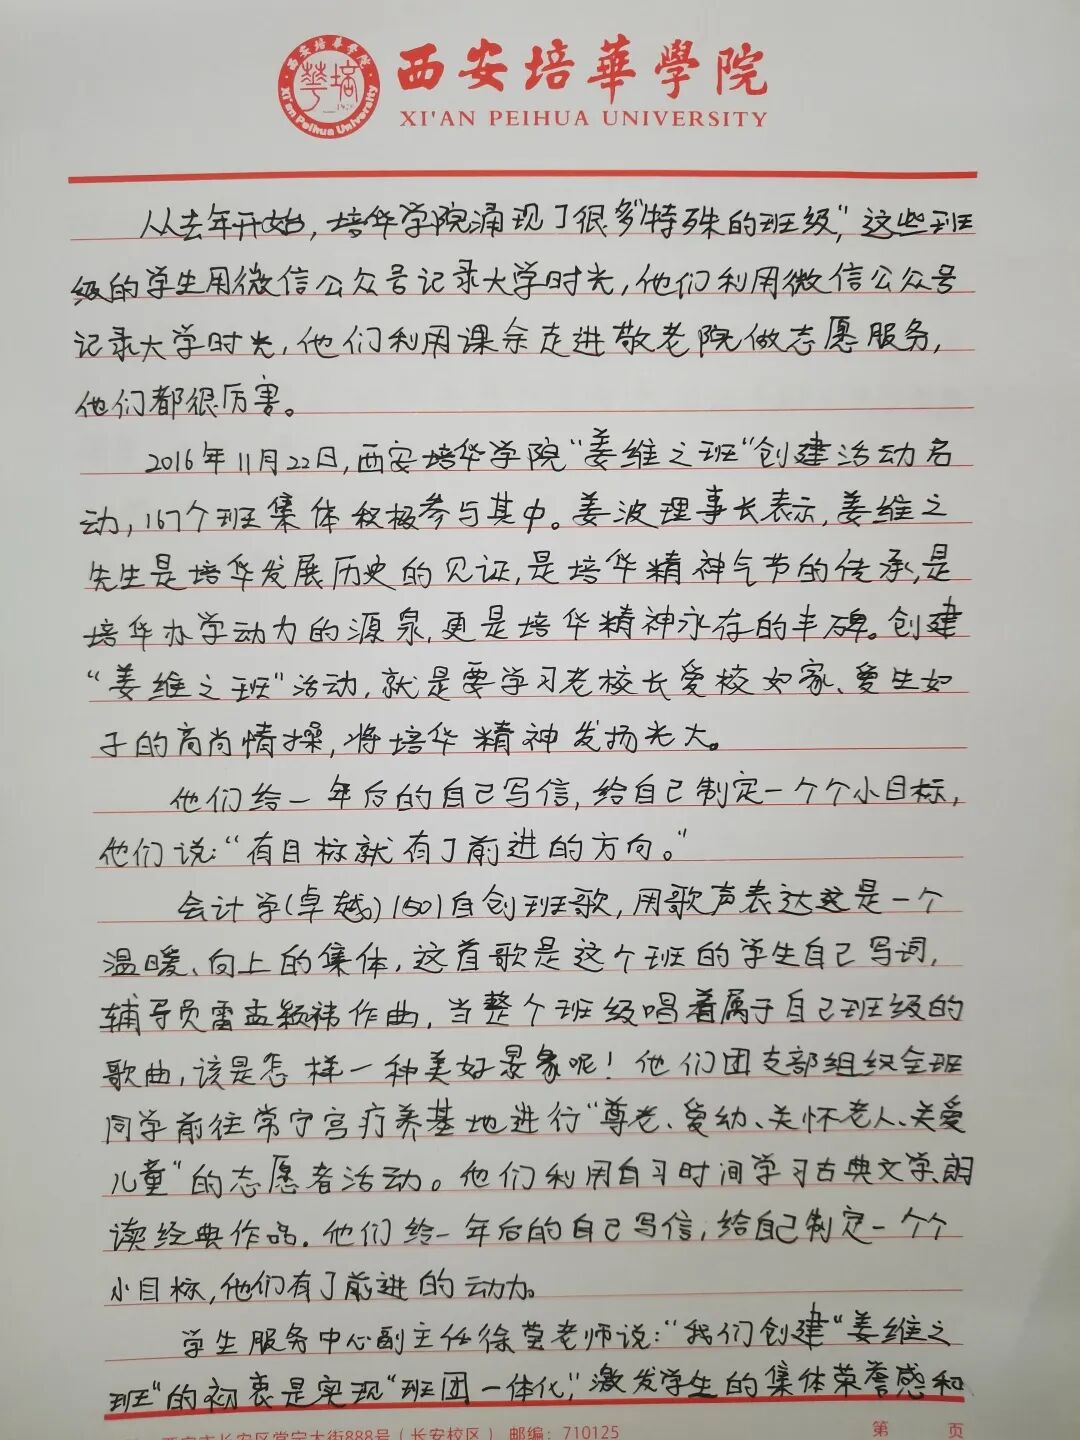 西安培華學院
XI'AN PEIHUA UNIVERSITY
从去年开始，培华学院涌现了很多“特殊的班级”，这些班
级的学生用微信公众号记录大学时光，他们利用微信公众号
记录大学时光，他们利用课余走进敬老院做志愿服务，
他们都很厉害。
2016年11月22日，西安培华学院“姜维之班”创建活动启
动，167个班集体积极参与其中。姜波理事长表示，姜维之
先生是培华发展历史的见证，是培华精神气节的传承，是
培华办学动力的源泉，更是培华精神永存的丰碑。创建
“姜维之班”活动，就是要学习老校长爱校如家、爱生如
子的高尚情操，将培华精神发扬光大。
他们给一年后的自己写信，给自己制定一个个小目标，
他们说：“有目标就有了前进的方向。”
会计学(卓越)1501自创班歌，用歌声表达这是一个
温暖、向上的集体，这首歌是这个班的学生自己写词，
辅导员雷孟颖祎作曲，当整个班级唱着属于自己班级的
歌曲，该是怎样一种美好景象呢！他们团支部组织全班
同学前往常宁宫疗养基地进行“尊老、爱幼、关怀老人、关爱
儿童”的志愿者活动。他们利用自习时间学习古典文学、朗
读经典作品。他们给一年后的自己写信，给自己制定一个个
小目标，他们有了前进的动力。
学生服务中心副主任徐莹老师说：“我们创建“姜维之
班”的初衷是实现“班团一体化”，激发学生的集体荣誉感和
西安市长安区常宁大街888号（长安校区） 邮编：710125 第 页